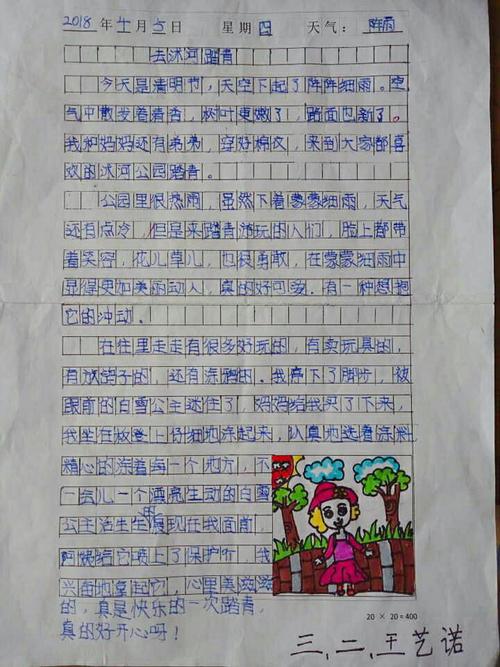 2018 年 4 月 5 日 星期 四 天气： 阵雨
去沭河踏青
今天是清明节，天空下起了阵阵细雨。空
气中散发着着香，树叶更嫩了，路面也新了。
我和妈妈还有弟弟，穿好棉衣，来到大家都喜
欢的沭河公园踏青。
公园里很热雨，虽然下着蒙蒙细雨，天气
还有点冷，但是来踏青游玩的人们，脸上都带
着笑容，花儿草儿，也很勇敢，在蒙蒙细雨中
显得更加美丽动人，真的好可爱。有一种想抱
它的冲动。
在往里走走有很多好玩的，有卖玩具的，
有放鸽子的，还有涂鸦的。我停下了脚步，被
眼前的白雪公主迷住了，妈妈给我买了下来，
我坐在板登上仔细地涂起来，认真地选着涂料，
精心的涂着每一个地方，不
一会儿一个漂亮生动的白雪
公主活生生展现在我面前，
阿姨给它喷上了保护 我
兴 地拿起它，心里美滋滋
的，真是快乐的一次踏青，
真的好开心呀！
20 × 20 = 400
三、二、王艺诺